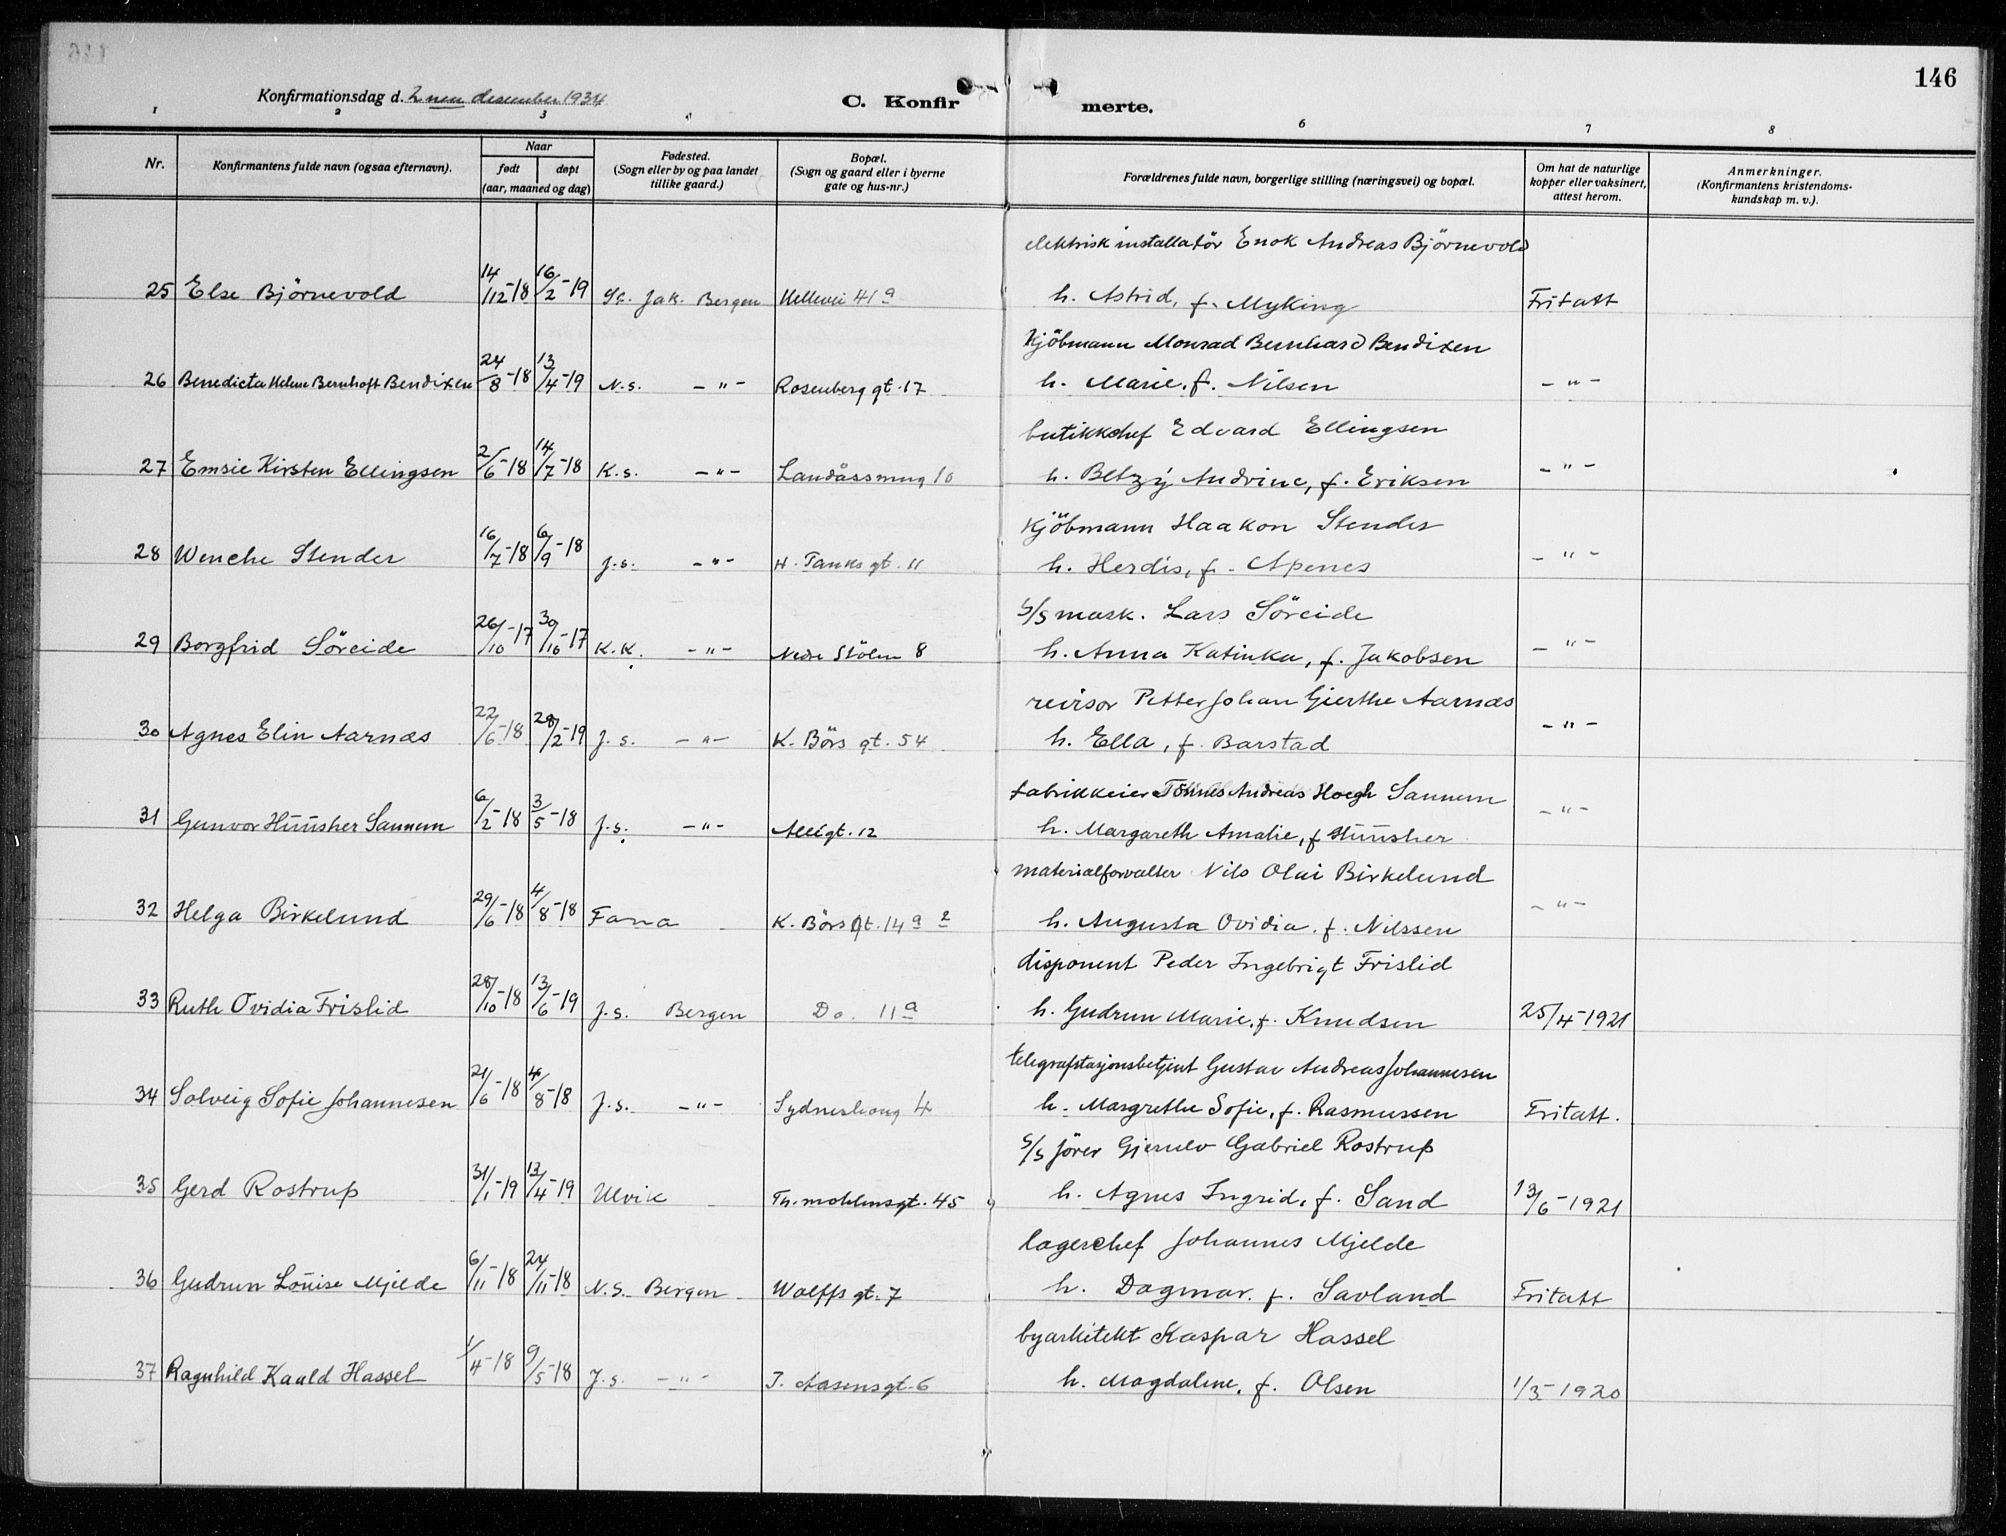 146
Konfirmationsdag d. 2nen desember 1934
C. Konfir merte.
1 2 3 4 6 7 8
Nr.
Konfirmantens fulde navn (ogsaa efternavn).
Naar
født døpt
(aar, maaned og dag)
Fødested.
(Sogn eller by og paa landet
tillike gaard.)
Bopæl.
(Sogn og gaard eller i byerne
gate og hus-nr.)
Forældrenes fulde navn, borgerlige stilling (næringsvei) og bopæl.
Om hat de naturlige
kopper eller vaksinert,
attest herom.
Anmerkninger.
(Konfirmantens kristendoms-
kundskap m. v.).
elektrisk installatör Enok Andreas Björnevold
25 Else Björnevold 14/12-18 16/2-19 Sc. Jak. Bergen Kellevei 41a h. Astrid, f. Myking Fritatt
Kjöbmann Monrad Bernhard Bendixen
26 Benedicta Helene Bernhoft Bendixen 24/8-18 13/4-19 N.s. -"- Rosenberg gt. 17 h. Marie, f. Nilsen -"-
butikkchef Edvard Ellingsen
27 Emsie Kirsten Ellingsen 2/6-18 14/7-18 K.s. -"- Landåssmug 10 h. Betzy Andrine, f. Eriksen -"-
Kjöbmann Haakon Stender
28 Wenche Stender 16/7-18 6/9-18 J.s. -"- H. Tanks gt. 11 h. Herdis, f. Apenes -"-
S/S mask. Lars Söreide
29 Borgfrid Söreide 26/10-17 30/10-17 K.K. -"- Nedre Stölen 8 h. Anna Katinka, f. Jakobsen -"-
revisor Petter Johan Gierthe Aarnæs
30 Agnes Elin Aarnæs 22/6-18 28/2-19 J.s. -"- K. Börs gt. 54 h. Ella, f. Barstad -"-
fabrikkeier Tönnes Andreas Hoegh Sannem
31 Gunvor Hüüsher Sannem 6/2-18 3/5-18 J.s. -"- Allégt. 12 h. Margareth Amalie, f. Hüüsher -"-
materialforvalter Nils Olai Birkelund
32 Helga Birkelund 29/6-18 4/8-18 Fana K. Börs gt. 14a 2 h. Augusta Ovidia, f. Nilssen -"-
disponent Peder Ingebrigt Frislid
33 Ruth Ovidia Frislid 28/10-18 13/6-19 J.s. Bergen Do. 11a h. Gudrun Marie, f. Knudsen 25/4-1921
telegrafstasjonsbetjent Gustav Andreas Johannesen
34 Solveig Sofie Johannesen 21/6-18 4/8-18 J.s. -"- Sydneskong 4 h. Margrethe Sofie, f. Rasmussen Fritatt.
S/S förer Gjerulv Gabriel Rostrup
35 Gerd Rostrup 31/1-19 13/4-19 Ulvik Th. mohlensgt. 45 h. Agnes Ingrid, f. Sand 13/6-1921
lagerchef Johannes Mjelde
36 Gudrun Louise Mjelde 6/11-18 24/11-18 N.S. Bergen Wolffs gt. 7 h. Dagmar, f. Savland Fritatt
byarkitekt Kaspar Hassel
37 Ragnhild Kauld Hassel 1/4-18 9/5-18 J.s. -"- I. Aasensgt. 6 h. Magdalene, f. Olsen 1/3-1920